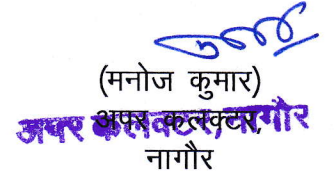 (मनोज कुमार)
अपर कलक्टर,
अपर कलक्टर, नागौर
नागौर